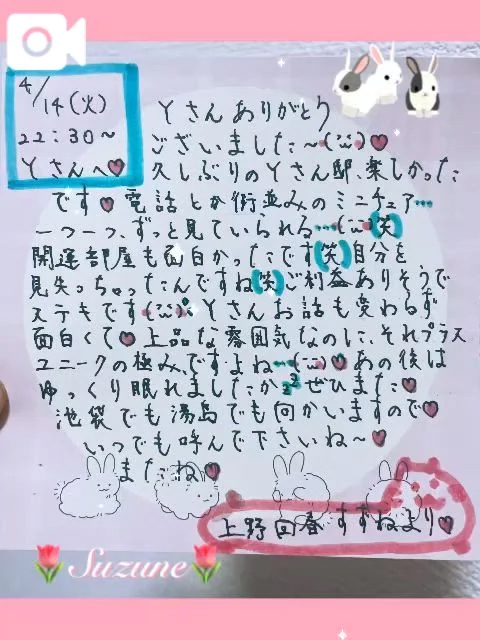 4/14(火)
22:30~
Yさんへ♥
Yさんありがとう
ございました~(¨̮)♥
久しぶりのYさん邸、楽しかった
です♥電話とか街並みのミニチュア…
一つ一つ、ずっと見ていられる…(¨̮)(笑)
開運部屋も面白かったです(笑)自分を
見失っちゃったんですね(笑)ご利益ありそうで
ステキです(¨̮)°Yさんお話も変わらず
面白くて♥上品な雰囲気なのに、それプラス
ユニークの極み、ですよね…(¨̮)♥あの後は
ゆっくり眠れましたか zz ぜひまた♥
池袋でも湯島でも向かいますので♥
いつでも呼んで下さいね~♥
またね♥
上野回春すずねより♥
🌷Suzune🌷